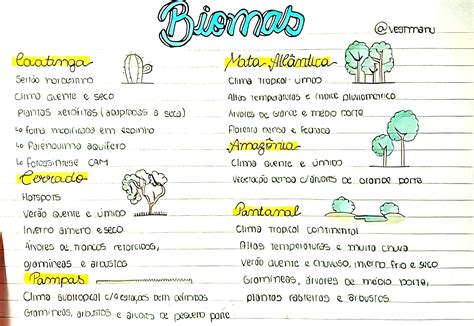 Biomas
@vestmanu
Caatinga
Sertão nordestino
Clima quente e seco
Plantas xerófitas (adaptadas a seca)
↳ folha modificada em espinho
↳ Parênquima aquífero
↳ fotossíntese CAM
Cerrado
Hotspots
Verão quente e úmido
Inverno ameno e seco
Árvores de troncos retorcidos,
gramíneas e arbustos
Pampas
Clima subtropical c/4 estações bem definidas
Gramíneas, arbustos e árvores de pequeno porte
Mata-Atlântica
Clima tropical-úmido
Altas temperaturas e índice pluviométrico
Árvores de grande e médio porte
Floresta densa e fechada
Amazônia
Clima quente e úmido
Vegetação densa c/árvores de grande porte
Pantanal
Clima tropical continental
Altas temperaturas e muita chuva
Verão quente e chuvoso, inverno frio e seco
Gramíneas, árvores de médio porte,
plantas rasteiras e arbustos